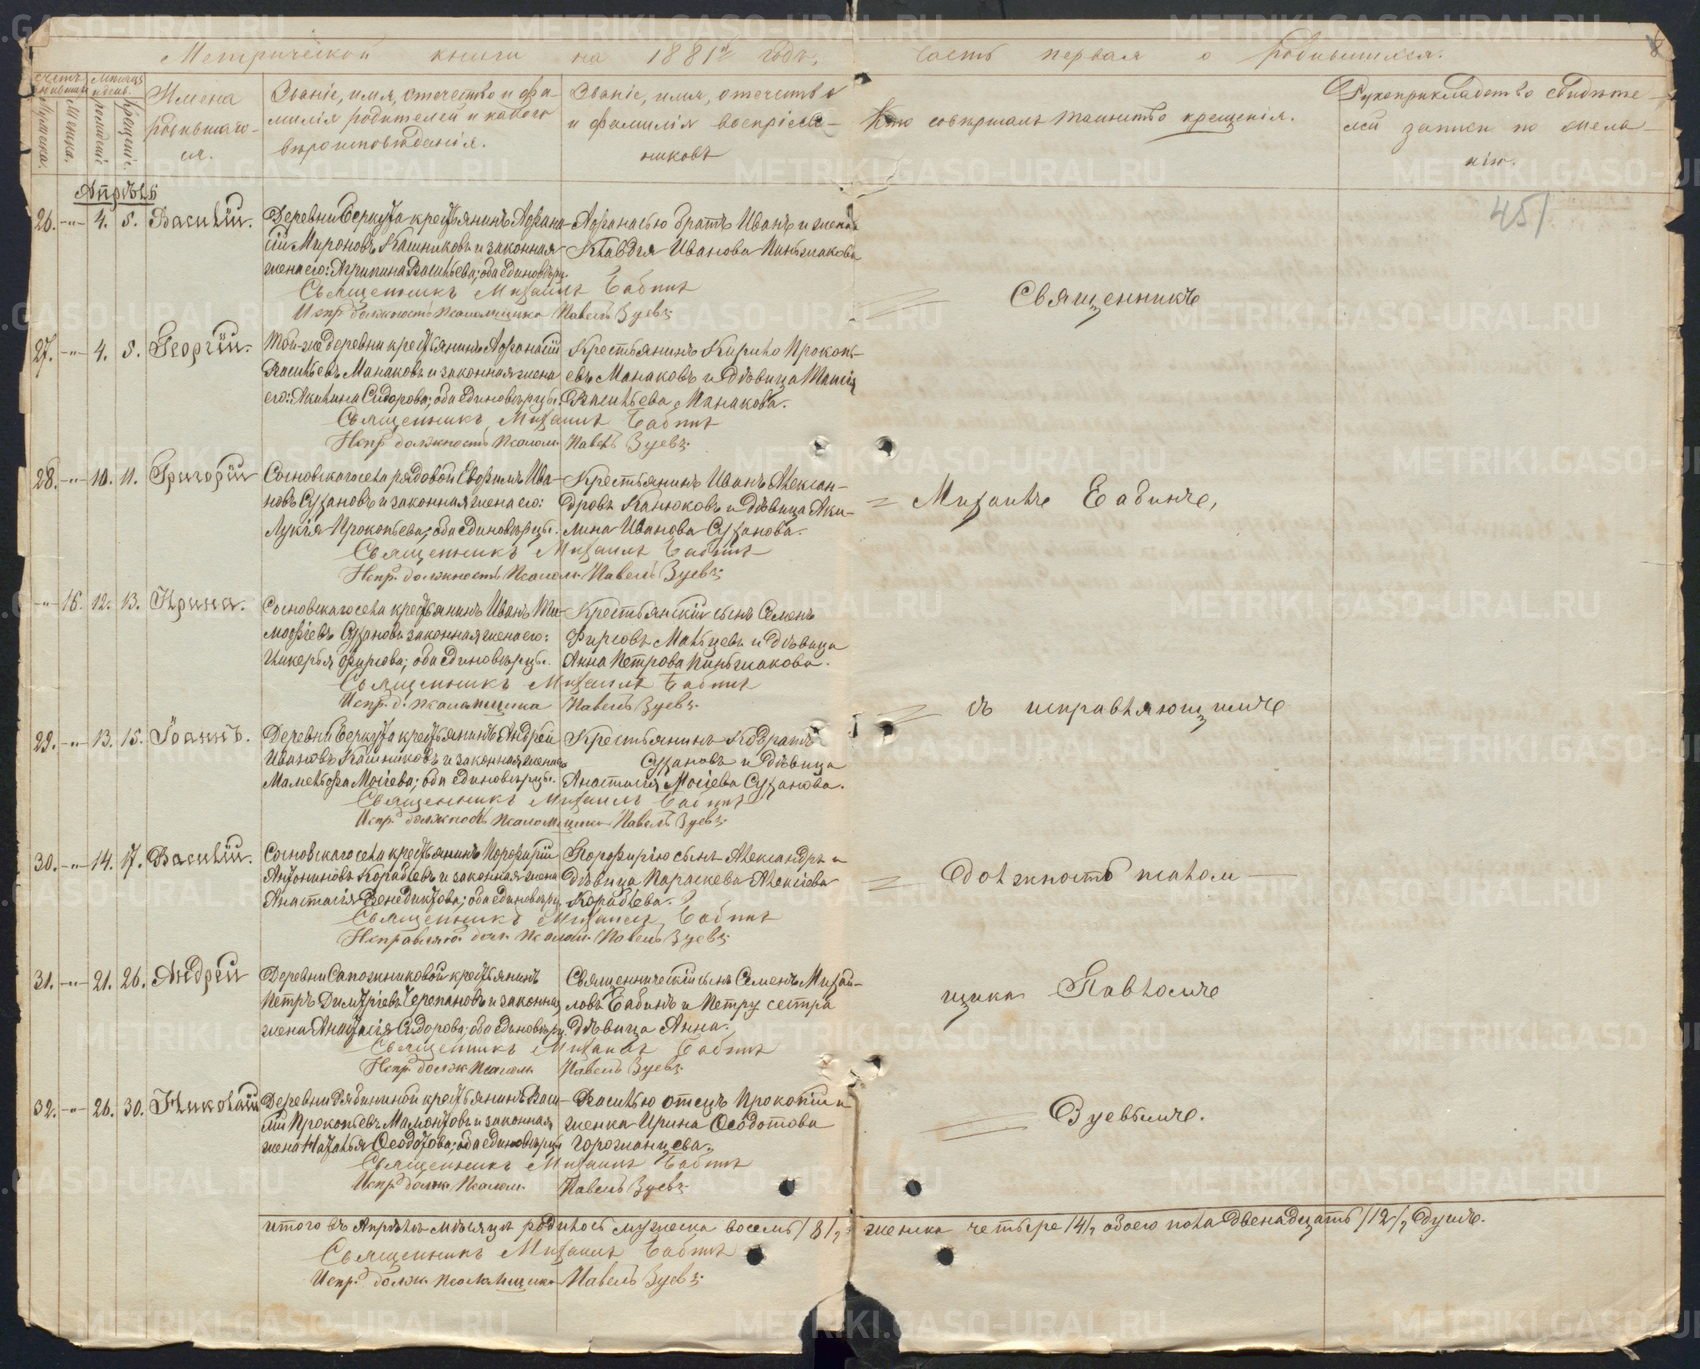 Метрической книги на 1881й годъ,
часть первая о родившихся.
Счетъ родившихся
Мѣсяцъ и день.
Мужеска.
Женска.
рожденія.
крещенія.
Имена
родившихся.
Званіе, имя, отчество и фамилія родителей и какого
вѣроисповѣданія.
Званіе, имя, отчество
и фамилія воспріем-
никовъ
Кто совершалъ таинство крещенія.
Рукоприкладство свидѣте-
лей записи по жела-
нію.
Апрѣль
451
26. -"- 4. 5. Василій.
Деревни Беркута крестьянинъ Афана-
сій Мироновъ Кашниковъ и законная
жена его: Агрипина Васильева; оба единовѣрц.
Афанасью братъ Иванъ и женка
Клавдія Иванова Пиньжакова
Священникъ Михаилъ Бабинъ
Испр. должность псаломщика Павелъ Зуевъ
27. -"- 4. 5. Георгій.
Той-же деревни крестьянинъ Афанасій
Васильевъ Манаковъ и законная жена
его: Акилина Сидорова; оба единовѣрцы.
Крестьянинъ Кирило Прокопь-
евъ Манаковъ и дѣвица
Васильева Манакова.
Священникъ Михаилъ Бабинъ
Испр. должность Псалом. Павелъ Зуевъ
28. -"- 10. 11. Григорій
Сосновскаго села рядовой Евфимъ Ива-
новъ Сухановъ и законная жена его:
Лукія Прокопьева; оба единовѣрцы.
Крестьянинъ Иванъ Алексан-
дровъ Канюковъ и дѣвица Аки-
лина Иванова Суханова.
Священникъ Михаилъ Бабинъ
Испр. должность Псалом. Павелъ Зуевъ
-"- 16. 12. 13. Ирина.
Сосновскаго села крестьянинъ Иванъ Ти-
мофѣевъ Сухановъ законная жена его:
Гликерья Фирсова; оба единовѣрцы.
Крестьянскій сынъ Семенъ
Фирсовъ Мальцевъ и дѣвица
Анна Петрова Пиньжакова.
Священникъ Михаилъ Бабинъ
Испр. д. псаломщика Павелъ Зуевъ
29. -"- 13. 15. Іоаннъ.
Деревни Беркута крестьянинъ Андрей
Ивановъ Кашниковъ и законная жена
Мамельфа Моѵсеева; оба единовѣрцы.
Крестьянинъ Кодратъ
Сухановъ и дѣвица
Анастасія Моисеева Суханова.
Священникъ Михаилъ Бабинъ
Испр. должность псаломщика Павелъ Зуевъ
30. -"- 14. 17. Василій.
Сосновскаго села крестьянинъ Порфирій
Антониновъ Корабльевъ и законная жена
Анастасія Венедиктова; оба единовѣрц.
Порфирію сынъ Александръ и
дѣвица Параскева Алексіева
Кораблева.
Священникъ Михаилъ Бабинъ
Исправляю. долж. псалом. Павелъ Зуевъ
31. -"- 21. 26. Андрей
Деревни Сапожниковой крестьянинъ
Петръ Димитріевъ Черепановъ и законная
жена Анастасія Сидорова; оба единовѣрц.
Священническій сынъ Семенъ Михай-
ловъ Бабинъ и Петру сестра
дѣвица Анна.
Священникъ Михаилъ Бабинъ
Испр. долж. Псалом. Павелъ Зуевъ
32. -"- 26. 30. Николай
Деревни Рябининой крестьянинъ Васи-
лій Прокопьевъ Мамонтовъ и законная
жена Наталья Ѳеодотова; оба единовѣрц.
Василью отецъ Прокопій и
женка Ирина Ѳеодотова
Священникъ Михаилъ Бабинъ
Испр. долж. Псалом. Павелъ Зуевъ
Священникъ
Михаилъ Бабинъ,
съ исправляющимъ
должность псалом-
щика Павломъ
Зуевымъ.
итого въ Апрѣлѣ мѣсяцѣ родилось мужеска восемь /8/, женска четыре /4/, обоего пола двенадцать /12/, душъ.
Священникъ Михаилъ Бабинъ
Испр. долж. псаломщика Павелъ Зуевъ
METRIKI.GASO-URAL.RU